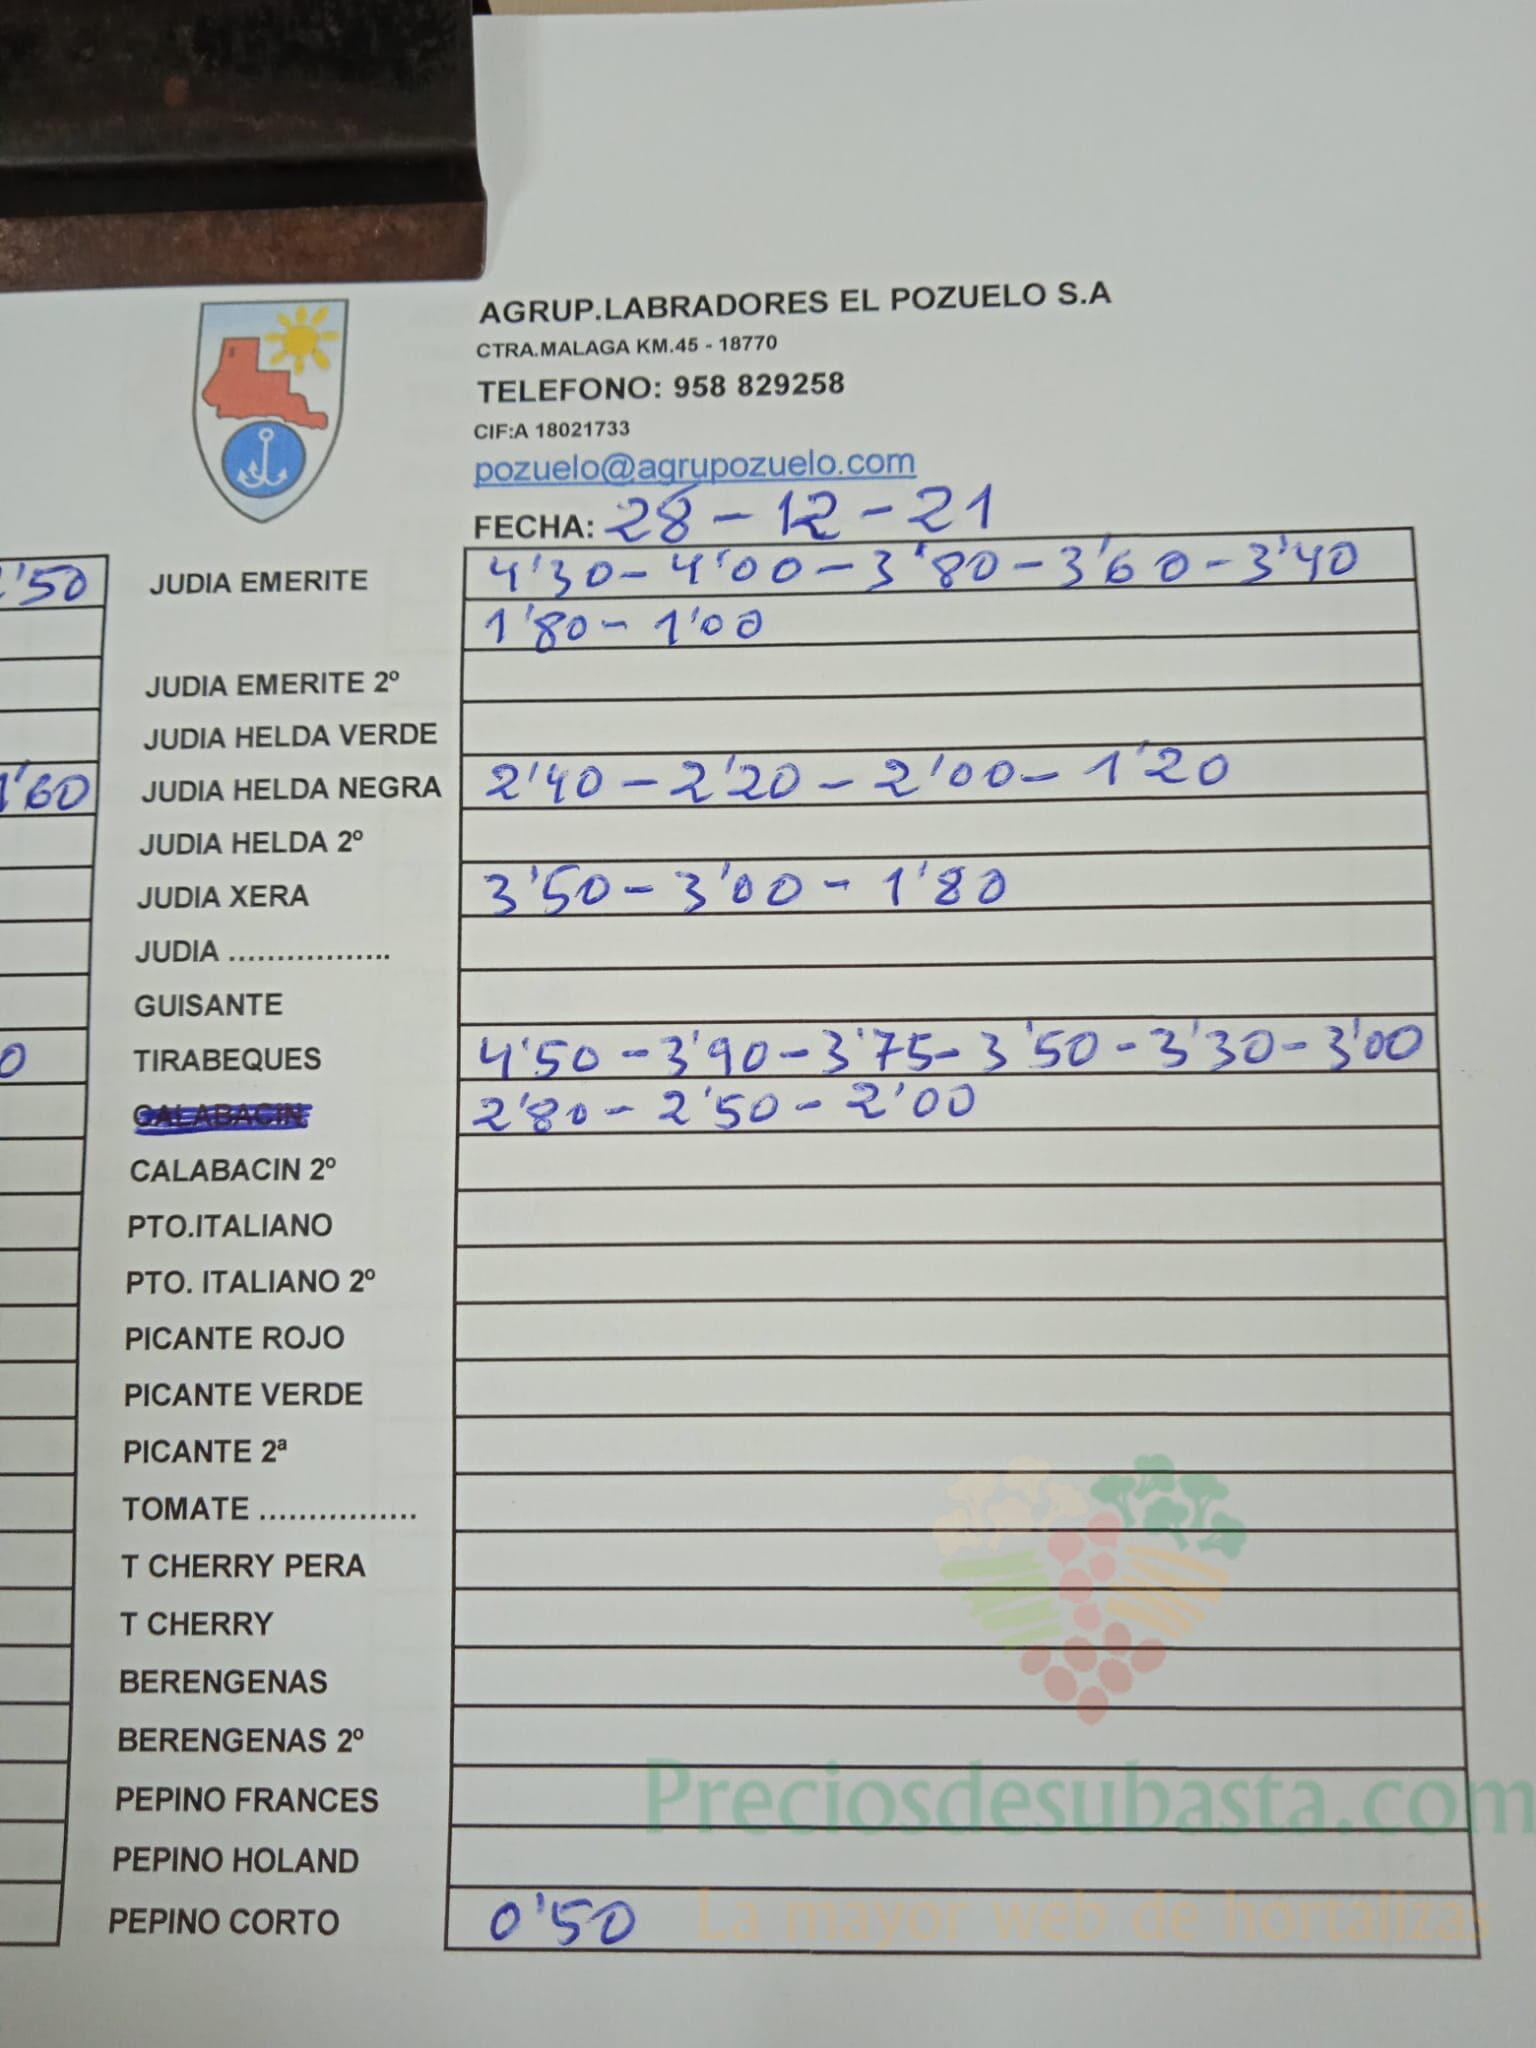 AGRUP.LABRADORES EL POZUELO S.A
CTRA.MALAGA KM.45 - 18770
TELEFONO: 958 829258
CIF:A 18021733
pozuelo@agrupozuelo.com
FECHA: 28-12-21
'50 JUDIA EMERITE 4'30-4'00-3'80-3'60-3'40
1'80-1'00
JUDIA EMERITE 2º
JUDIA HELDA VERDE
1'60 JUDIA HELDA NEGRA 2'40-2'20-2'00-1'20
JUDIA HELDA 2º
JUDIA XERA 3'50-3'00-1'80
JUDIA .................
GUISANTE
0 TIRABEQUES 4'50-3'90-3'75-3'50-3'30-3'00
CALABACIN 2'80-2'50-2'00
CALABACIN 2º
PTO.ITALIANO
PTO. ITALIANO 2º
PICANTE ROJO
PICANTE VERDE
PICANTE 2ª
TOMATE ................
T CHERRY PERA
T CHERRY
BERENGENAS
BERENGENAS 2º
PEPINO FRANCES
Preciosdesubasta.com
PEPINO HOLAND
PEPINO CORTO 0'50
La mayor web de hortalizas